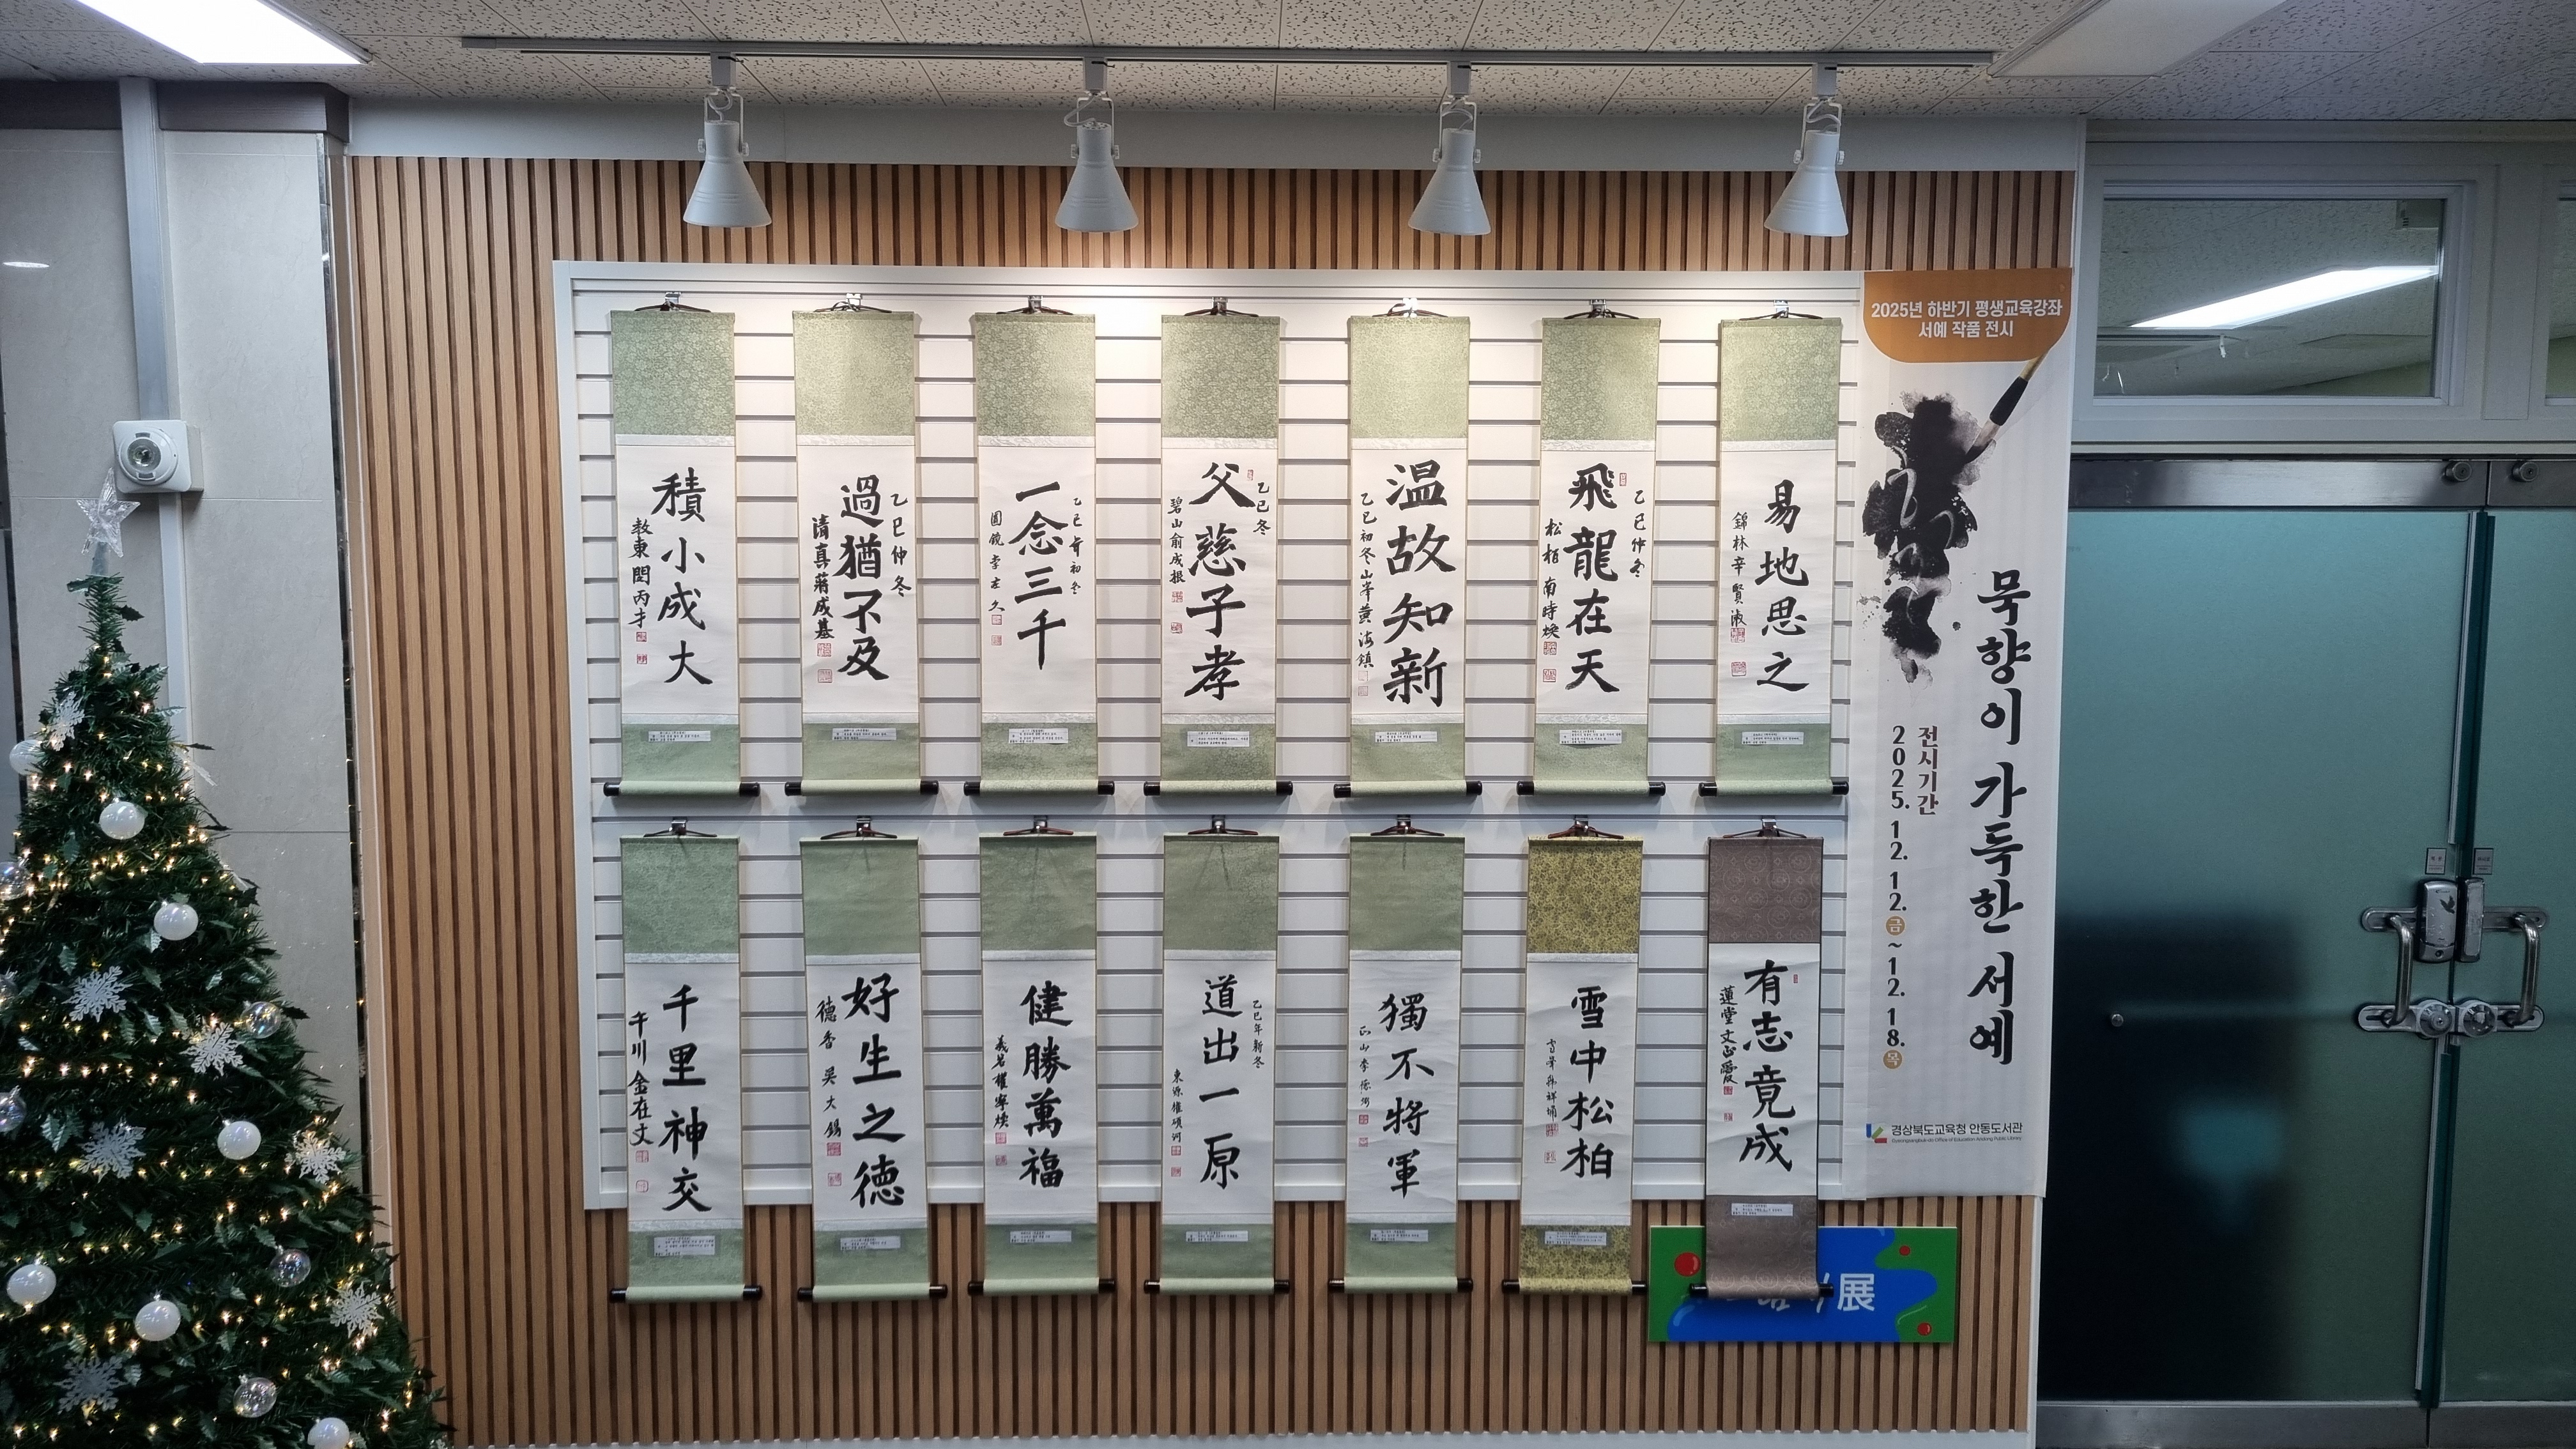 積小成大
敎東 閔丙才
過猶不及
乙巳仲冬
清真 蔣成基
一念三千
乙巳年初冬
圓鏡 李左久
父慈子孝
乙巳冬
碧山 俞成根
温故知新
乙巳初冬 山峯 黄海鎮
飛龍在天
乙巳仲冬
松栢 南時煥
易地思之
錦林 辛賢淑
2025년 하반기 평생교육강좌
서예 작품 전시
묵향이 가득한 서예
전시기간
2025. 12. 12. 금 ~ 12. 18. 목
경상북도교육청 안동도서관
Gyeongsangbuk-do Office of Education Andong Public Library
千里神交
午川 金在文
好生之徳
德香 吳大錫
健勝萬福
義岩 權寧煥
道出一原
乙巳年新冬
東源 權碩河
獨不将軍
雪中松柏
有志竟成
蓮堂 文正愛
展